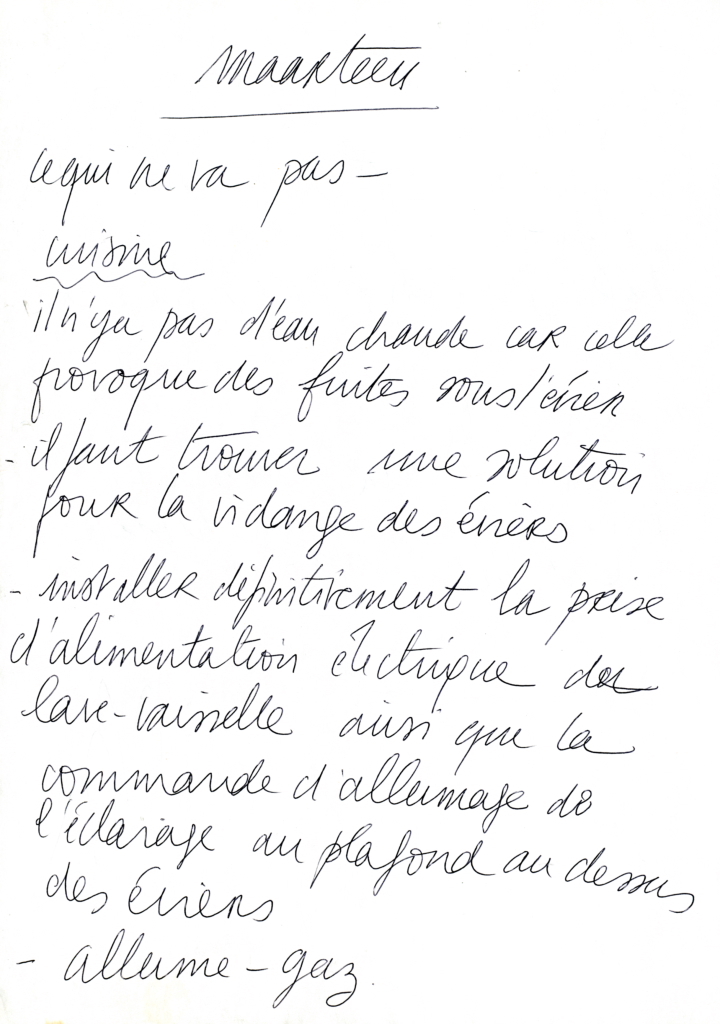 maarteen
ce qui ne va pas -
cuisine
il n'y a pas d'eau chaude car celle
provoque des fuites sous l'évier
- il faut trouver une solution
pour la vidange des éviers
- installer définitivement la prise
d'alimentation électrique du
lave-vaisselle ainsi que la
commande d'allumage de
l'éclairage au plafond au dessus
des éviers
- allume-gaz.